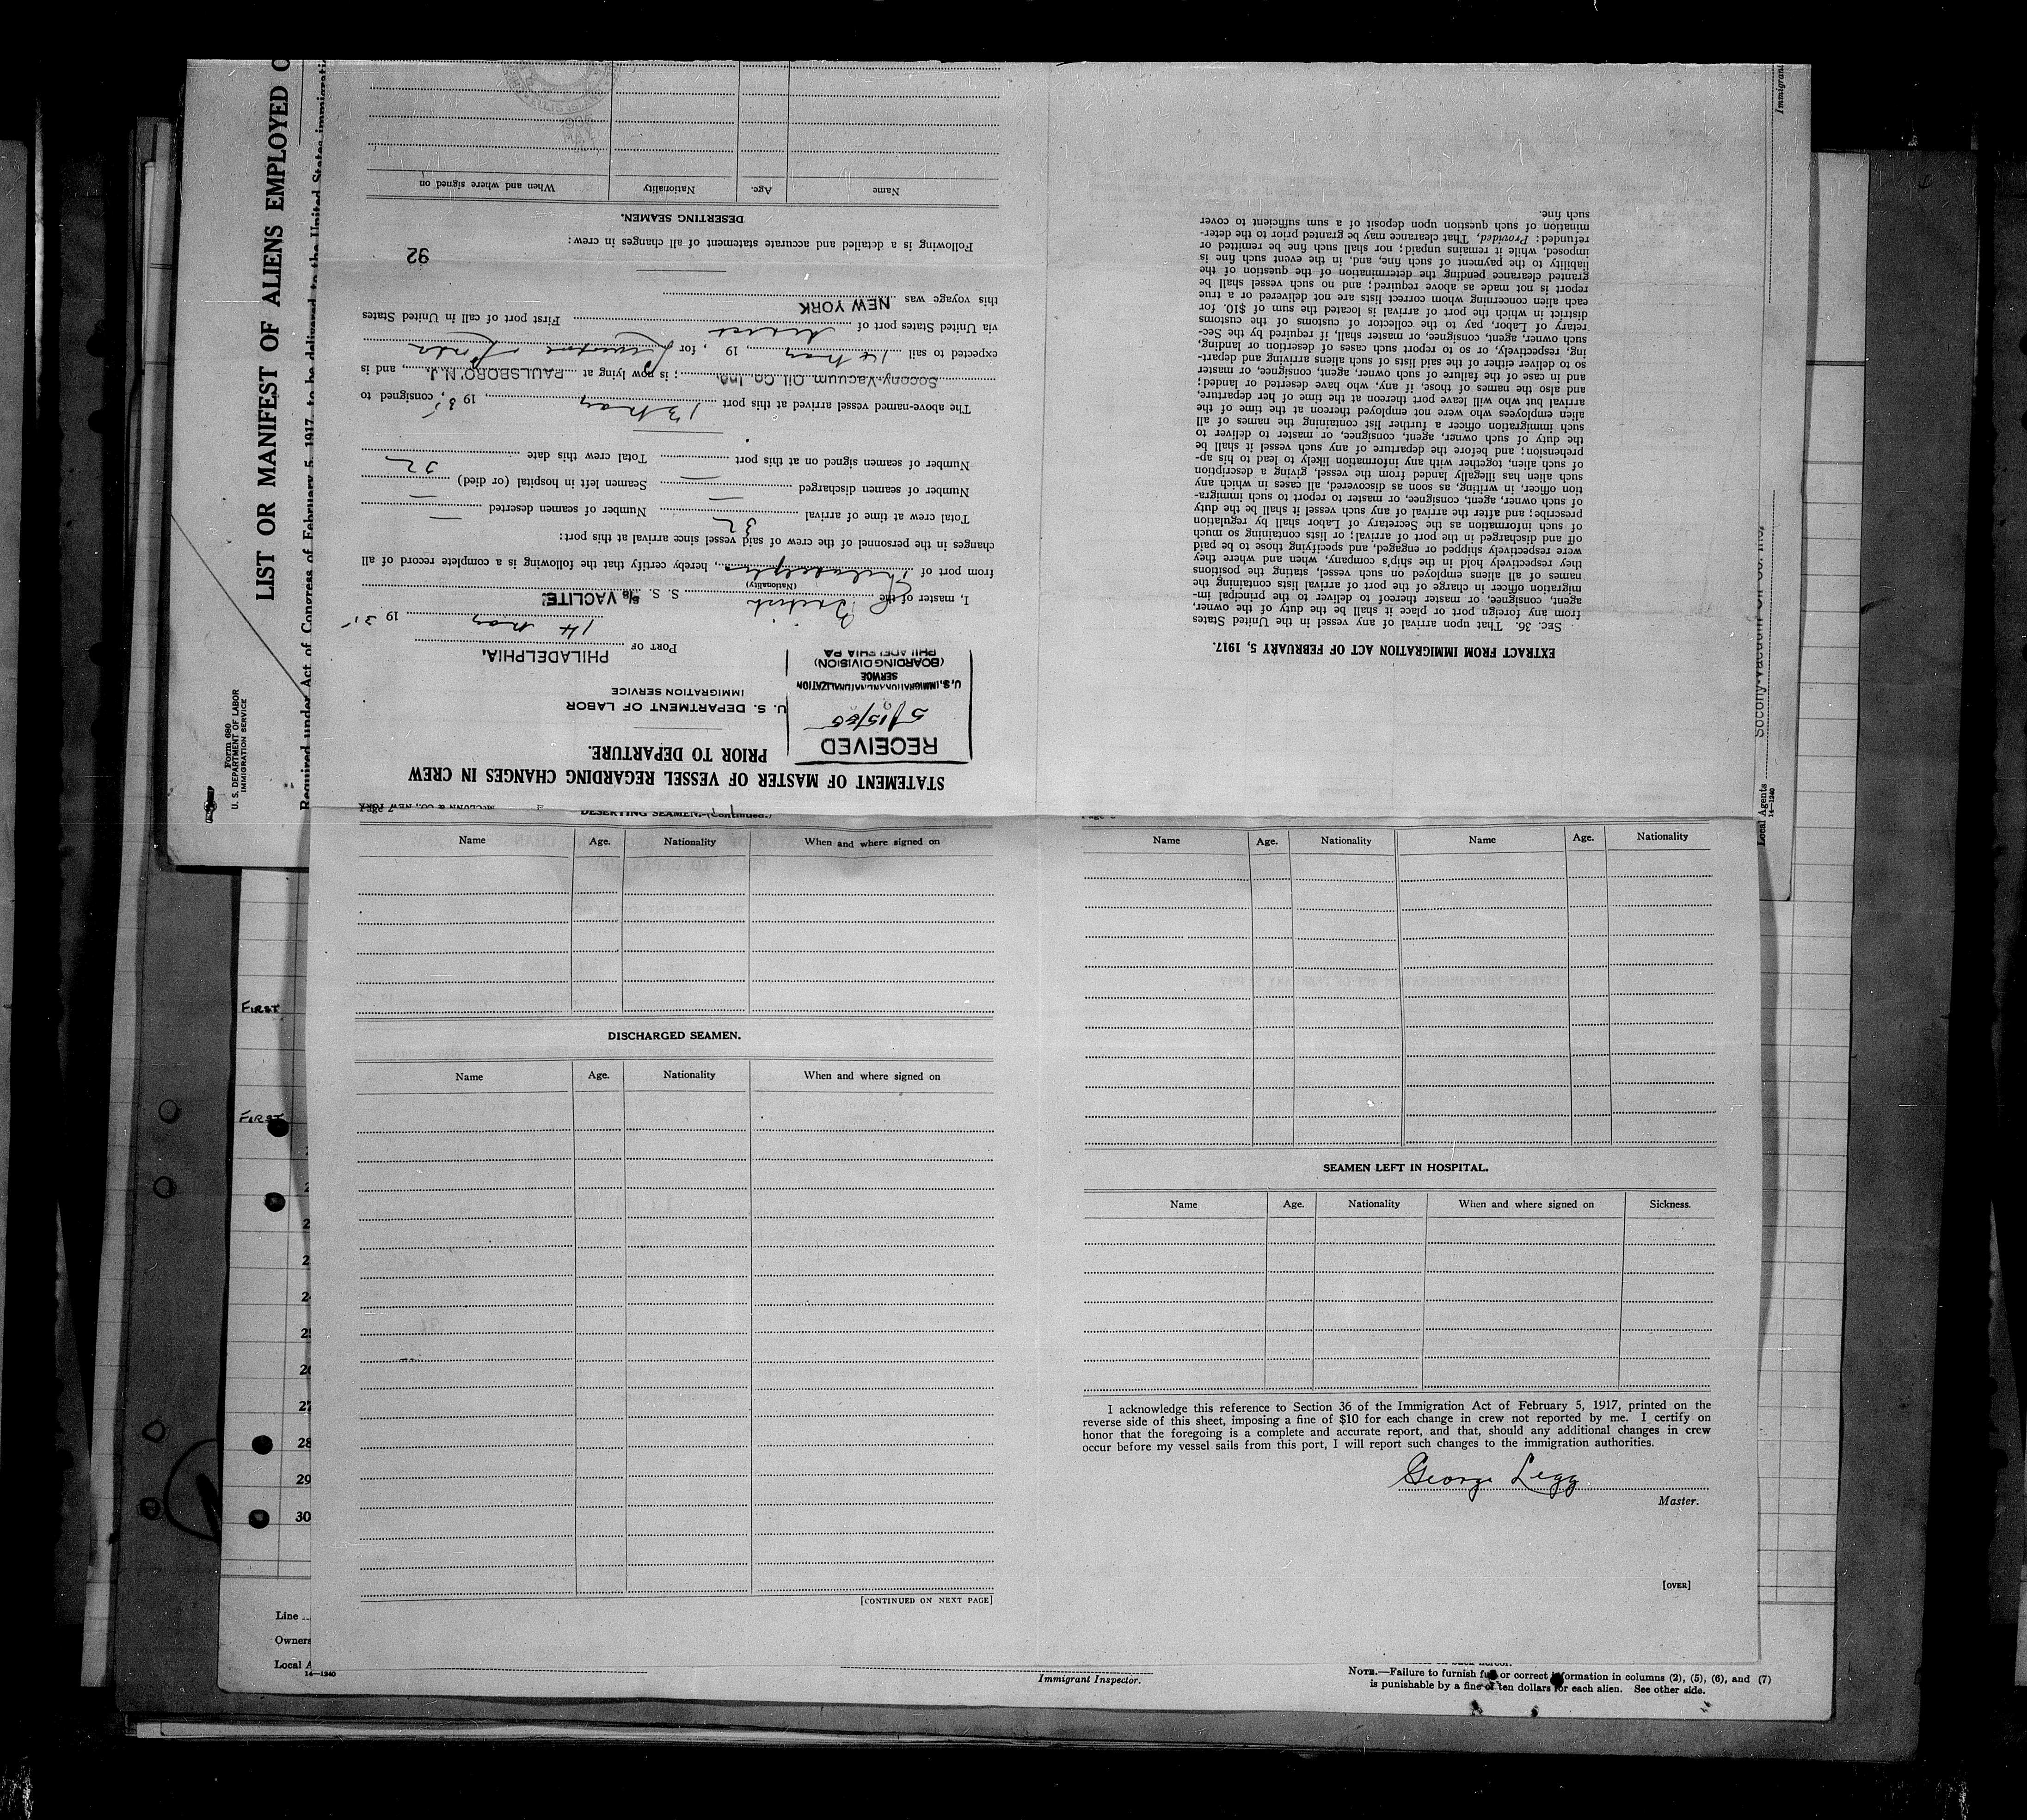 LIST OR MANIFEST OF ALIENS EMPLOYED O
Required under Act of Congress of February 5, 1917, to be delivered to the United States immigrati
Form 680
U. S. DEPARTMENT OF LABOR
IMMIGRATION SERVICE
STATEMENT OF MASTER OF VESSEL REGARDING CHANGES IN CREW
PRIOR TO DEPARTURE.
RECEIVED
5/15/35
U. S. IMMIGRATION AND NATURALIZATION
SERVICE
(BOARDING DIVISION)
PHILADELPHIA PA
U. S. DEPARTMENT OF LABOR
IMMIGRATION SERVICE
PORT OF PHILADELPHIA.
14 May 1935
I, master of the British S. S. S/S "VACLITE"
(Nationality)
from port of Philadelphia, hereby certify that the following is a complete record of all
changes in the personnel of the crew of said vessel since arrival at this port:
Total crew at time of arrival 32 Number of seamen deserted —
Number of seamen discharged — Seamen left in hospital (or died) —
Number of seamen signed on at this port — Total crew this date 32
The above-named vessel arrived at this port 13 May, 1935, consigned to
Socony-Vacuum Oil Co. Inc.; is now lying at PAULSBORO, N.J., and is
expected to sail 14 May 19 , for Liverpool
via United States port of First port of call in United States
this voyage was NEW YORK
92
Following is a detailed and accurate statement of all changes in crew:
DESERTING SEAMEN.
Name Age. Nationality When and where signed on
ELLIS ISLAN
EXTRACT FROM IMMIGRATION ACT OF FEBRUARY 5, 1917.
SEC. 36. That upon arrival of any vessel in the United States
from any foreign port or place it shall be the duty of the owner,
agent, consignee, or master thereof to deliver to the principal im-
migration officer in charge of the port of arrival lists containing the
names of all aliens employed on such vessel, stating the positions
they respectively hold in the ship's company, when and where they
were respectively shipped or engaged, and specifying those to be paid
off and discharged in the port of arrival; or lists containing so much
of such information as the Secretary of Labor shall by regulation
prescribe; and after the arrival of any such vessel it shall be the duty
of such owner, agent, consignee, or master to report to such immigra-
tion officer, in writing, as soon as discovered, all cases in which any
such alien has illegally landed from the vessel, giving a description
of such alien, together with any information likely to lead to his ap-
prehension; and before the departure of any such vessel it shall be
the duty of such owner, agent, consignee, or master to deliver to
such immigration officer a further list containing the names of all
alien employees who were not employed thereon at the time of the
arrival but who will leave port thereon at the time of her departure,
and also the names of those, if any, who have deserted or landed;
and in case of the failure of such owner, agent, consignee, or master
so to deliver either of the said lists of such aliens arriving and depart-
ing, respectively, or so to report such cases of desertion or landing,
such owner, agent, consignee, or master shall, if required by the Sec-
retary of Labor, pay to the collector of customs of the customs
district in which the port of arrival is located the sum of $10. for
each alien concerning whom correct lists are not delivered or a true
report is not made as above required; and no such vessel shall be
granted clearance pending the determination of the question of the
liability to the payment of such fine, and, in the event such fine is
imposed, while it remains unpaid; nor shall such fine be remitted or
refunded: Provided, That clearance may be granted prior to the deter-
mination of such question upon deposit of a sum sufficient to cover
such fine.
Immigrant
Socony-Vacuum Oil Co. Inc.
Local Agents
14—1240
Page 7
DESERTING SEAMEN—(Continued.)
Name Age. Nationality When and where signed on
DISCHARGED SEAMEN.
Name Age. Nationality When and where signed on
[CONTINUED ON NEXT PAGE]
Name Age. Nationality Name Age. Nationality
SEAMEN LEFT IN HOSPITAL.
Name Age. Nationality When and where signed on Sickness.
I acknowledge this reference to Section 36 of the Immigration Act of February 5, 1917, printed on the
reverse side of this sheet, imposing a fine of $10 for each change in crew not reported by me. I certify on
honor that the foregoing is a complete and accurate report, and that, should any additional changes in crew
occur before my vessel sails from this port, I will report such changes to the immigration authorities.
George Legg
Master.
[OVER]
FIRST
FIRST
27
28
29
30
Line
Owners
Local A
14—1240
Immigrant Inspector.
NOTE.—Failure to furnish full or correct information in columns (2), (5), (6), and (7)
is punishable by a fine of ten dollars for each alien. See other side.